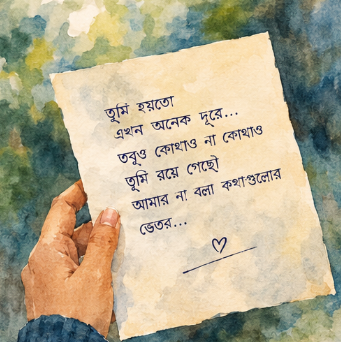 তুমি হয়তো
এখন অনেক দূরে...
তবুও কোথাও না কোথাও
তুমি রয়ে গেছো
আমার না বলা কথাগুলোর
ভেতর...